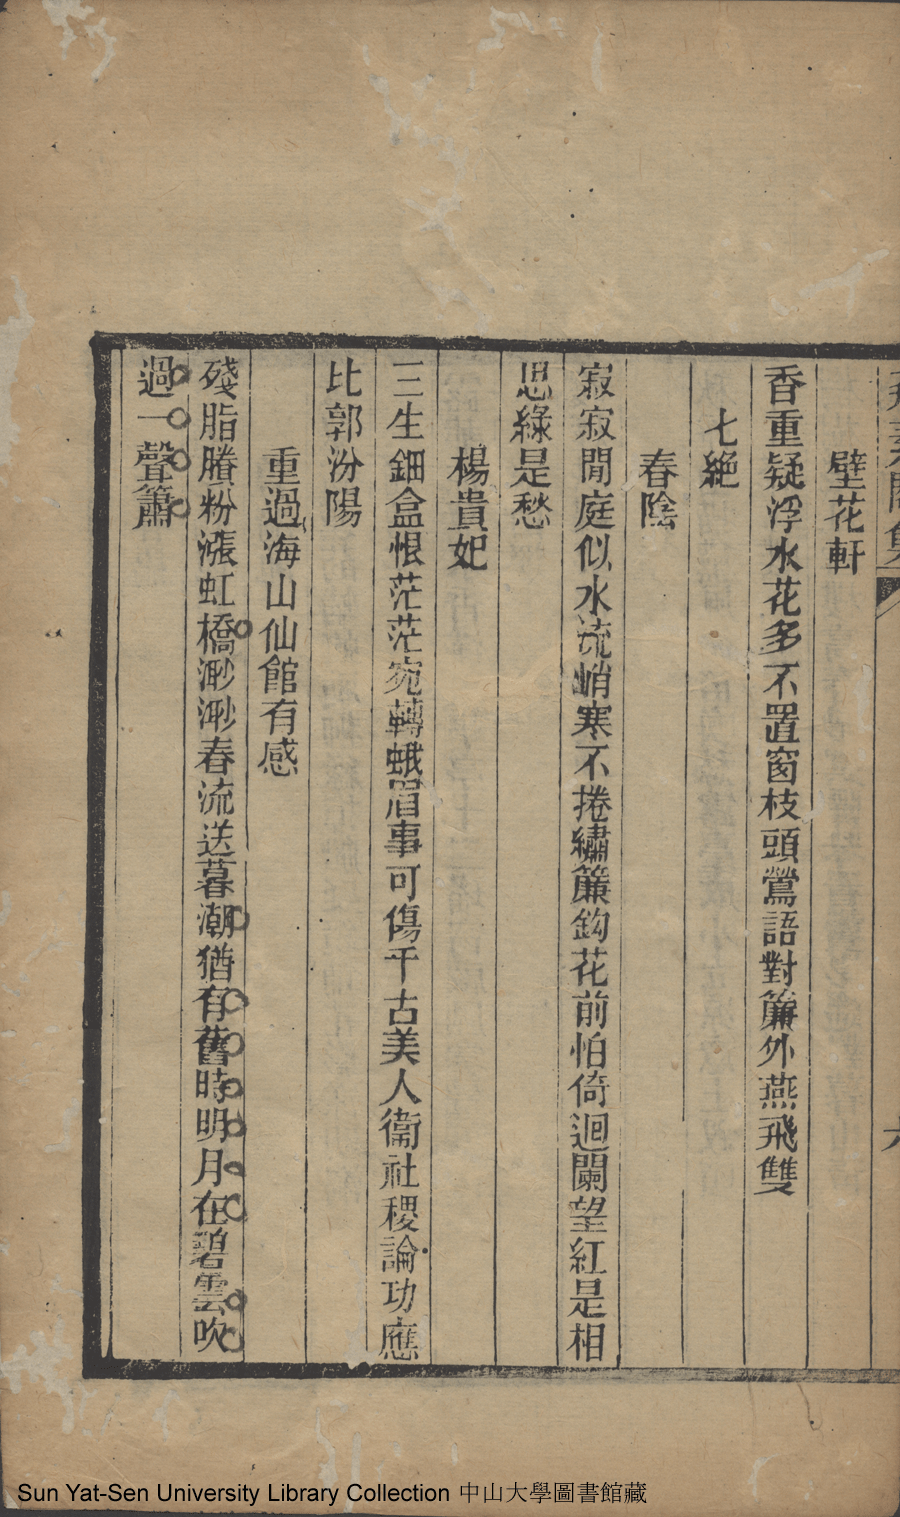 六
壁花軒
香重疑浮水花多不置窗枝頭鶯語對簾外燕飛雙
七絕
春陰
寂寂閒庭似水流峭寒不捲繡簾鈎花前怕倚迴闌望紅是相
思綠是愁
楊貴妃
三生鈿盒恨茫茫宛轉蛾眉事可傷千古美人衞社稷論功應
比郭汾陽
重過海山仙館有感
殘脂賸粉漲虹橋渺渺春流送暮潮猶有舊時明月在碧雲吹
過一聲簫
Sun Yat-Sen University Library Collection 中山大學圖書館藏